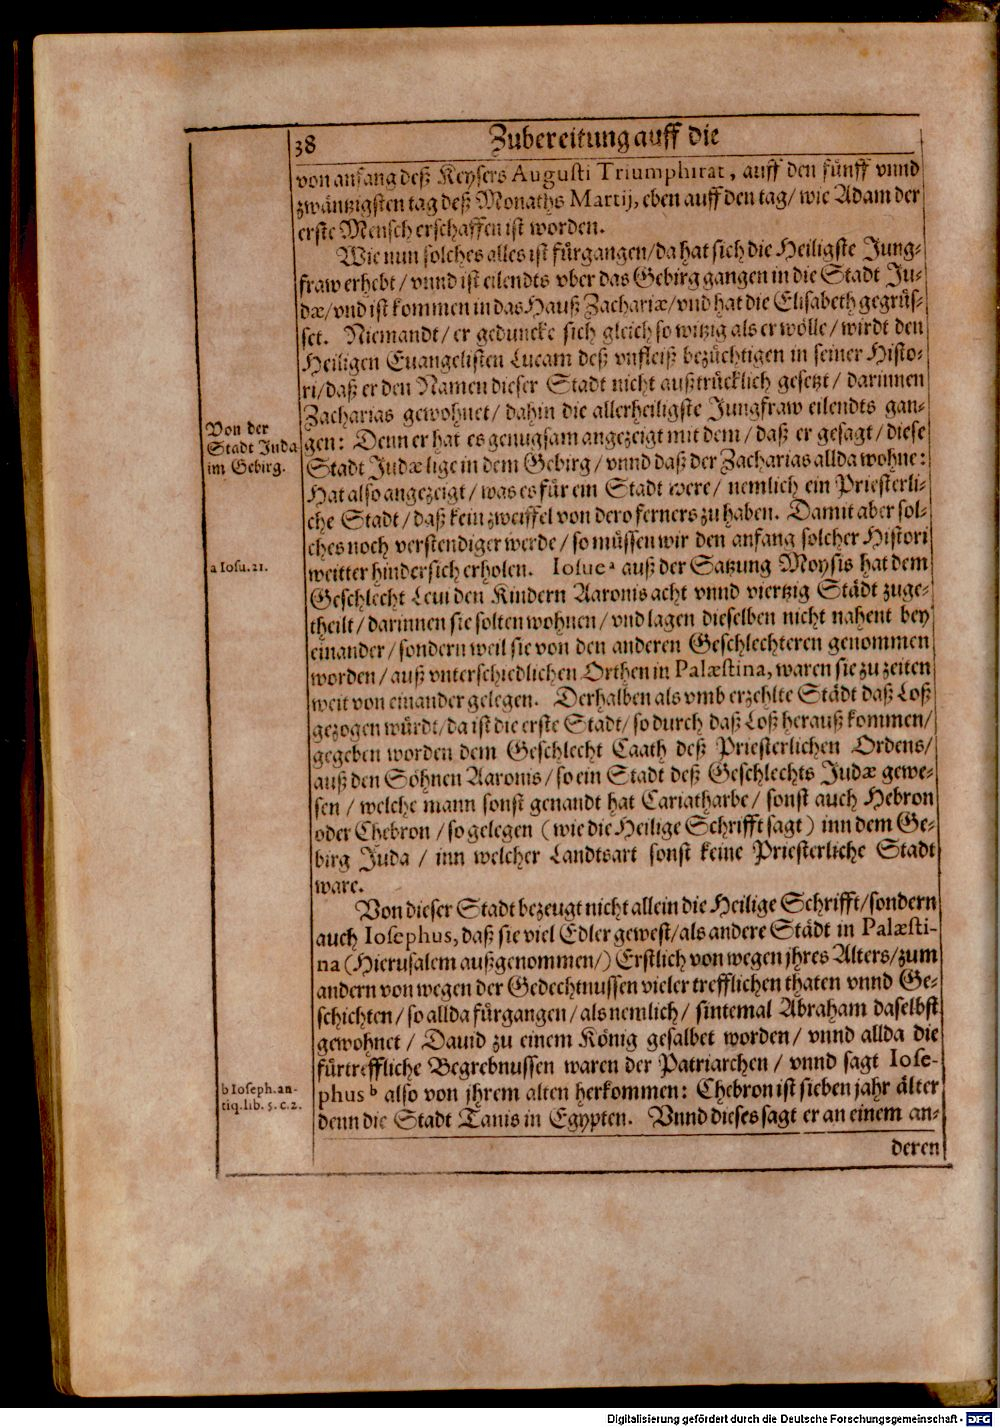 38 Zubereitung auff die
von anfang deß Keysers Augusti Triumphirat, auff den fünff vnnd
zwäntzigsten tag deß Monaths Martij, eben auff den tag/ wie Adam der
erste Mensch erschaffen ist worden.
Wie nun solches alles ist fürgangen/da hat sich die Heiligste Jung-
fraw erhebt/ vnnd ist eilendts vber das Gebirg gangen in die Stadt Ju-
dæ/vnd ist kommen in das Hauß Zachariæ/vnd hat die Elisabeth gegrüs-
set. Niemandt/ er geduncke sich gleich so witzig als er wölle/ wirdt den
Heiligen Euangelisten Lucam deß vnfleiß bezüchtigen in seiner Histo-
ri/daß er den Namen dieser Stadt nicht außtrücklich gesetzt/ darinnen
Zacharias gewohnet/ dahin die allerheiligste Jungfraw eilendts gan-
Von der
Stadt Juda
im Gebirg.
gen: Denn er hat es genugsam angezeigt mit dem/ daß er gesagt/ diese
Stadt Judæ lige in dem Gebirg/ vnnd daß der Zacharias allda wohne:
Hat also angezeigt/ was es für ein Stadt were/ nemlich ein Priesterli-
che Stadt/ daß kein zweiffel von dero ferners zu haben. Damit aber sol-
ches noch verstendiger werde/ so müssen wir den anfang solcher Histori
a Iosu. 21.
weitter hindersich erholen. Iosue a auß der Satzung Moysis hat dem
Geschlecht Leui den Kindern Aaronis acht vnnd viertzig Städt zuge-
theilt/ darinnen sie solten wohnen/ vnd lagen dieselben nicht nahent bey
einander/ sondern weil sie von den anderen Geschlechteren genommen
worden/ auß vnterschiedlichen Orthen in Palæstina, waren sie zu zeiten
weit von einander gelegen. Derhalben als vmb erzehlte Städt daß Loß
gezogen würdt/da ist die erste Stadt/ so durch daß Loß herauß kommen/
gegeben worden dem Geschlecht Caath deß Priesterlichen Ordens/
auß den Söhnen Aaronis/ so ein Stadt deß Geschlechts Judæ gewe-
sen/ welche mann sonst genandt hat Cariatharbe/ sonst auch Hebron
oder Chebron/ so gelegen (wie die Heilige Schrifft sagt) inn dem Ge-
birg Juda/ inn welcher Landtsart sonst keine Priesterliche Stadt
ware.
Von dieser Stadt bezeugt nicht allein die Heilige Schrifft/sondern
auch Iosephus, daß sie viel Edler gewest/als andere Städt in Palæsti-
na (Hierusalem außgenommen/) Erstlich von wegen jhres Alters/zum
andern von wegen der Gedechtnussen vieler trefflichen thaten vnnd Ge-
schichten/ so allda fürgangen/ als nemlich/ sintemal Abraham daselbst
gewohnet/ Dauid zu einem König gesalbet worden/ vnnd allda die
fürtreffliche Begrebnussen waren der Patriarchen/ vnnd sagt Iose-
b Ioseph. an-
tiq. lib. 5. c. 2.
phus b also von jhrem alten herkommen: Chebron ist sieben jahr älter
denn die Stadt Tanis in Egypten. Vnnd dieses sagt er an einem an-
deren
Digitalisierung gefördert durch die Deutsche Forschungsgemeinschaft - DFG